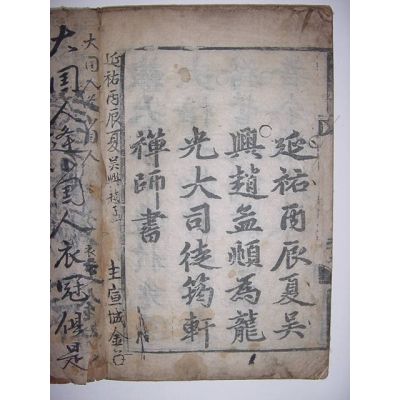 延祐丙辰夏吳
興趙孟頫為龍
光大司徒筠軒
禪師書
延祐丙辰夏吳興趙
主宣城金
大国人
大国人逢小国人衣冠